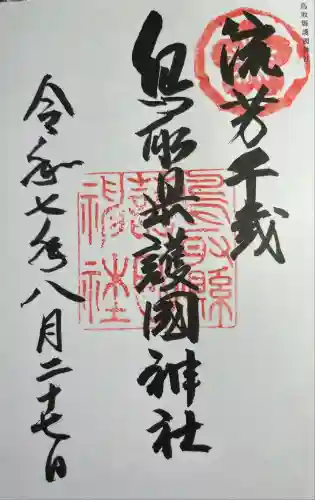 鳥取縣護國神社
流芳千載
鳥取県護國神社
令和七年八月二十七日
鳥取縣護國神社